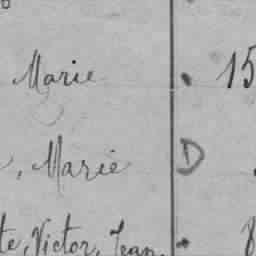 Marie • 15
, Marie D
te, Victor, Jean, •